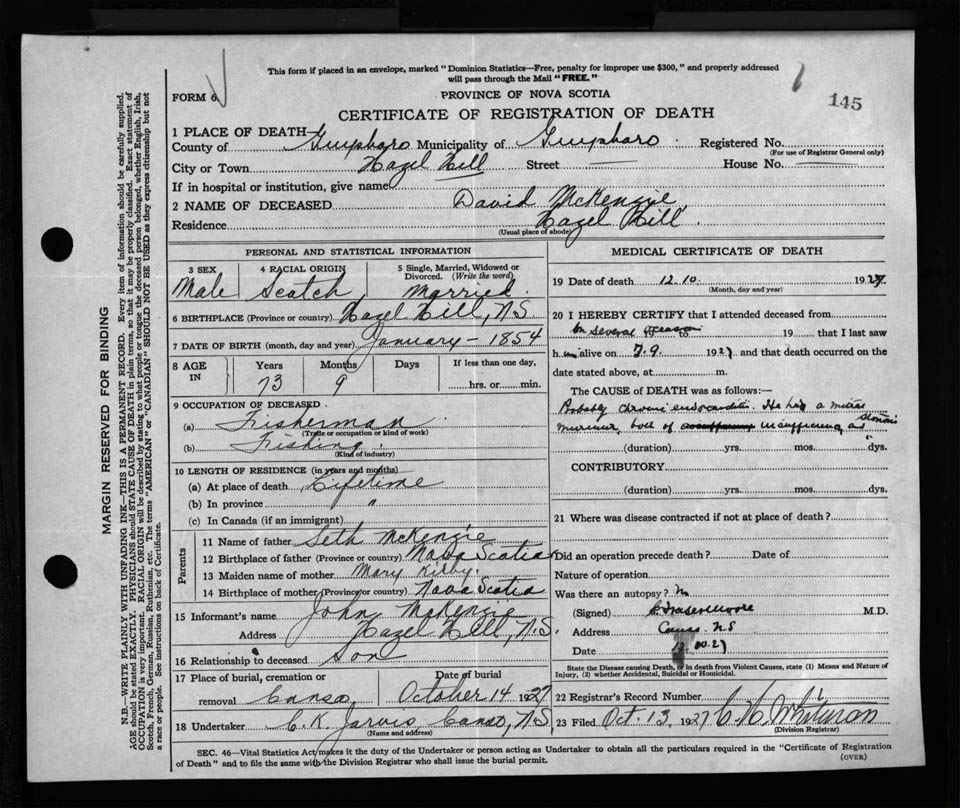 This form if placed in an envelope, marked "Dominion Statistics—Free, penalty for improper use $300," and properly addressed
will pass through the Mail "FREE."
FORM 6.
PROVINCE OF NOVA SCOTIA
145
CERTIFICATE OF REGISTRATION OF DEATH
1 PLACE OF DEATH
County of Guysboro Municipality of Guysboro Registered No.
(For use of Registrar General only)
City or Town Hazel Hill Street House No.
If in hospital or institution, give name
2 NAME OF DECEASED David McKenzie
Residence Hazel Hill
(Usual place of abode)
PERSONAL AND STATISTICAL INFORMATION
3 SEX 4 RACIAL ORIGIN 5 Single, Married, Widowed or Divorced. (Write the word)
Male Scotch Married
6 BIRTHPLACE (Province or country) Hazel Hill, N.S.
7 DATE OF BIRTH (month, day and year) January - 1854
8 AGE IN Years Months Days If less than one day,
73 9 hrs. or min.
9 OCCUPATION OF DECEASED
(a) Fisherman
(Trade or occupation or kind of work)
(b) Fishing
(Kind of industry)
10 LENGTH OF RESIDENCE (in years and months)
(a) At place of death Lifetime
(b) In province "
(c) In Canada (if an immigrant)
Parents
11 Name of father Seth McKenzie
12 Birthplace of father (Province or country) Nova Scotia
13 Maiden name of mother Mary Kirby
14 Birthplace of mother (Province or country) Nova Scotia
15 Informant's name John McKenzie
Address Hazel Hill, N.S.
16 Relationship to deceased Son
17 Place of burial, cremation or removal Canso Date of burial October 14 1927
18 Undertaker C. K. Jarvis Canso, N.S.
(Name and address)
MEDICAL CERTIFICATE OF DEATH
19 Date of death 12.10. 1927.
(Month, day and year)
20 I HEREBY CERTIFY that I attended deceased from
on several occasions 19 that I last saw
h im alive on 7.9. 1927 and that death occurred on the
date stated above, at m.
The CAUSE of DEATH was as follows:—
Probably chronic endocarditis. He had a mitral
murmur, both of insufficiency and stenosis
(duration) yrs. mos. dys.
CONTRIBUTORY
(duration) yrs. mos. dys.
21 Where was disease contracted if not at place of death?
Did an operation precede death? Date of
Nature of operation
Was there an autopsy? No
(Signed) Moore M.D.
Address Canso. N S
Date 10.27
State the Disease causing Death, or in death from Violent Causes, state (1) Means and Nature of
Injury, (2) whether Accidental, Suicidal or Homicidal.
22 Registrar's Record Number
23 Filed Oct 13, 1927 C. H. Whitman
(Division Registrar)
SEC. 46—Vital Statistics Act makes it the duty of the Undertaker or person acting as Undertaker to obtain all the particulars required in the "Certificate of Registration
of Death" and to file the same with the Division Registrar who shall issue the burial permit.
(OVER)
MARGIN RESERVED FOR BINDING
N.B.—WRITE PLAINLY WITH UNFADING INK—THIS IS A PERMANENT RECORD. Every item of information should be carefully supplied.
AGE should be stated EXACTLY. PHYSICIANS should STATE CAUSE OF DEATH in plain terms, so that it may be properly classified. Exact statement of
OCCUPATION is very important. RACIAL ORIGIN will be described by stating to what people or tongue the deceased person belonged, whether English, Irish,
Scotch, French, German, Russian, Ruthenian, etc. The terms "AMERICAN" or "CANADIAN" SHOULD NOT BE USED as they express citizenship but not
a race or people. See instructions on back of Certificate.